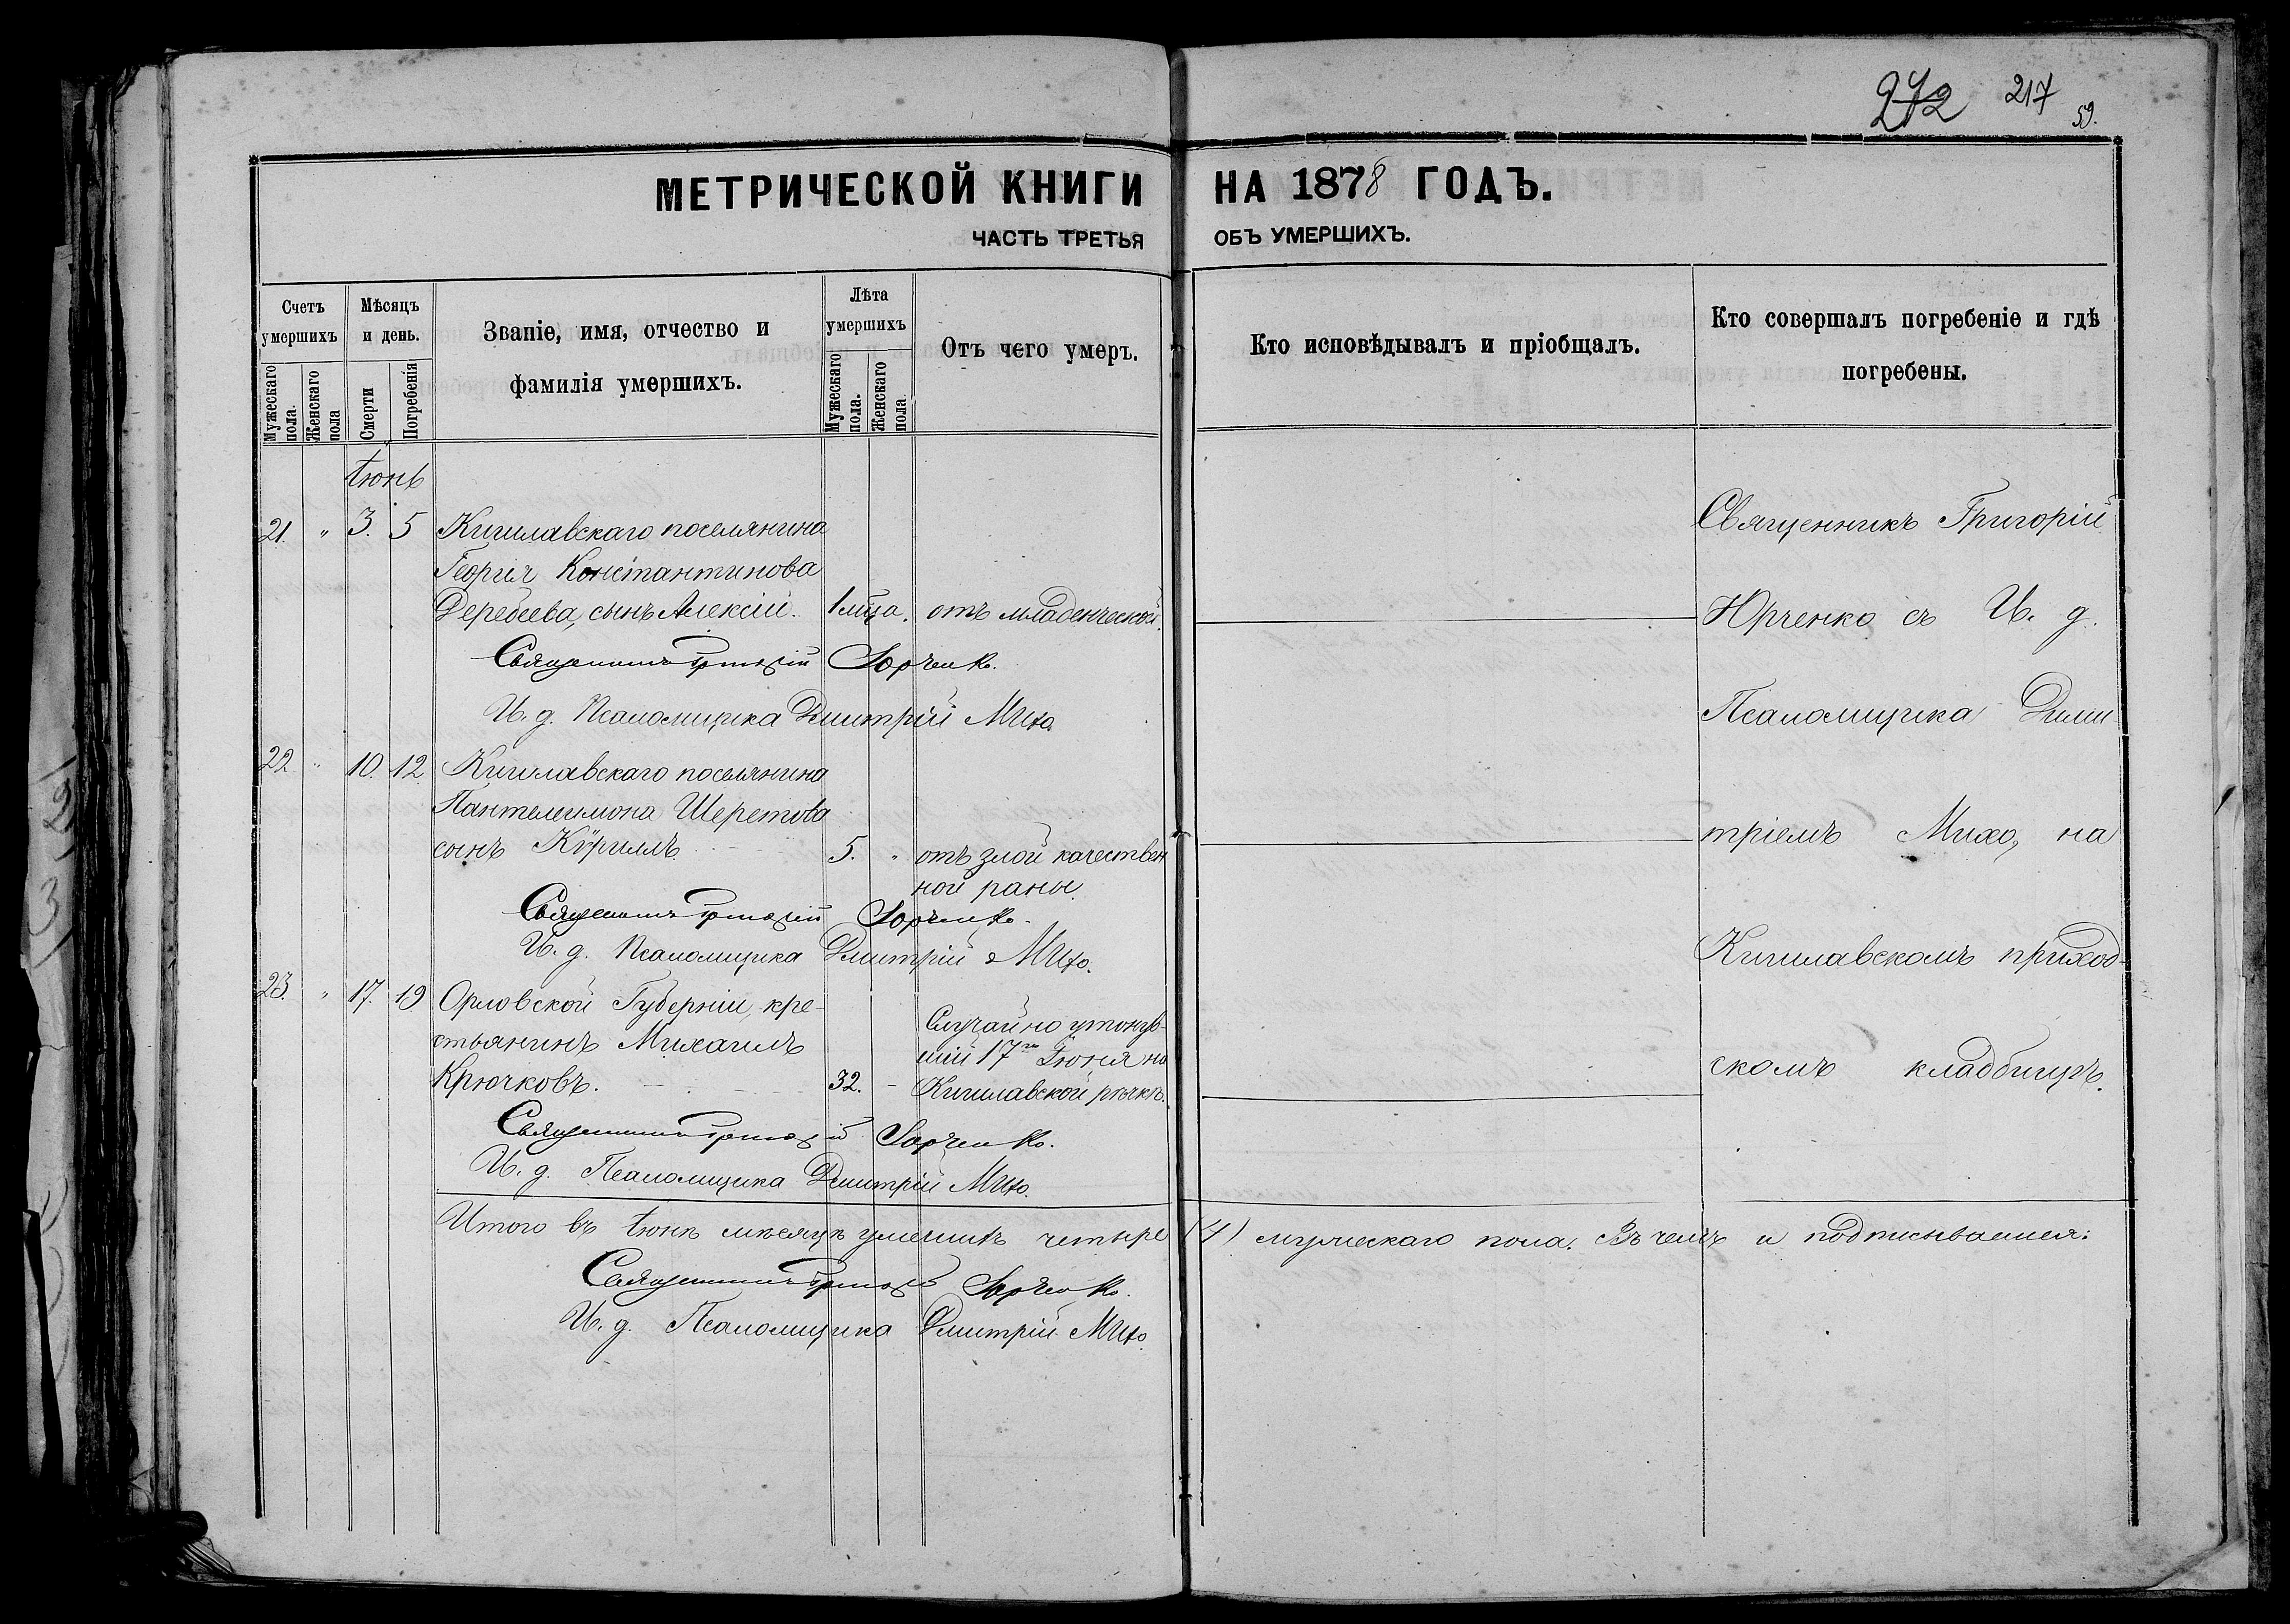 272 217 59.
МЕТРИЧЕСКОЙ КНИГИ НА 1878 ГОДЪ.
ЧАСТЬ ТРЕТЬЯ ОБЪ УМЕРШИХЪ.
Счетъ умершихъ
Мужескаго пола.
Женскаго пола
Мѣсяцъ и день.
Смерти
Погребенія
Званіе, имя, отчество и
фамилія умершихъ.
Лѣта умершихъ
Мужескаго пола.
Женскаго пола
Отъ чего умеръ.
Кто исповѣдывалъ и пріобщалъ.
Кто совершалъ погребеніе и гдѣ
погребены.
Іюнь
21. " 3. 5 Кишлавскаго поселянина
Георгія Константинова
Деребеева, сынъ Алексій. 1 мца. отъ младенческой.
Священникъ Григорій Юрченко.
И. д. Псаломщика Дмитрій Михо.
22 " 10. 12 Кишлавскаго поселянина
Пантелеимона Шеретова
сынъ Кѵриллъ 5. " отъ злой качествен
ной раны.
Священникъ Григорій Юрченко.
И. д. Псаломщика Дмитрій Михо.
23. " 17. 19 Орловской Губерніи, кре-
стьянинъ Михаилъ
Крючковъ. 32. -
Случайно утонув-
шій 17го Іюня на
Кишлавской рѣчкѣ.
Священникъ Григорій Юрченко.
И. д. Псаломщика Дмитрій Михо.
Священникъ Григорій
Юрченко съ И. д.
Псаломщика Дими
тріемъ Михо, на
Кишлавскомъ приход-
скомъ кладбищѣ.
Итого въ Іюнѣ мѣсяцѣ умершихъ четыре (4) мужескаго пола. Въ чемъ и подписываемся:
Священникъ Григорій Юрченко.
И. д. Псаломщика Дмитрій Михо.